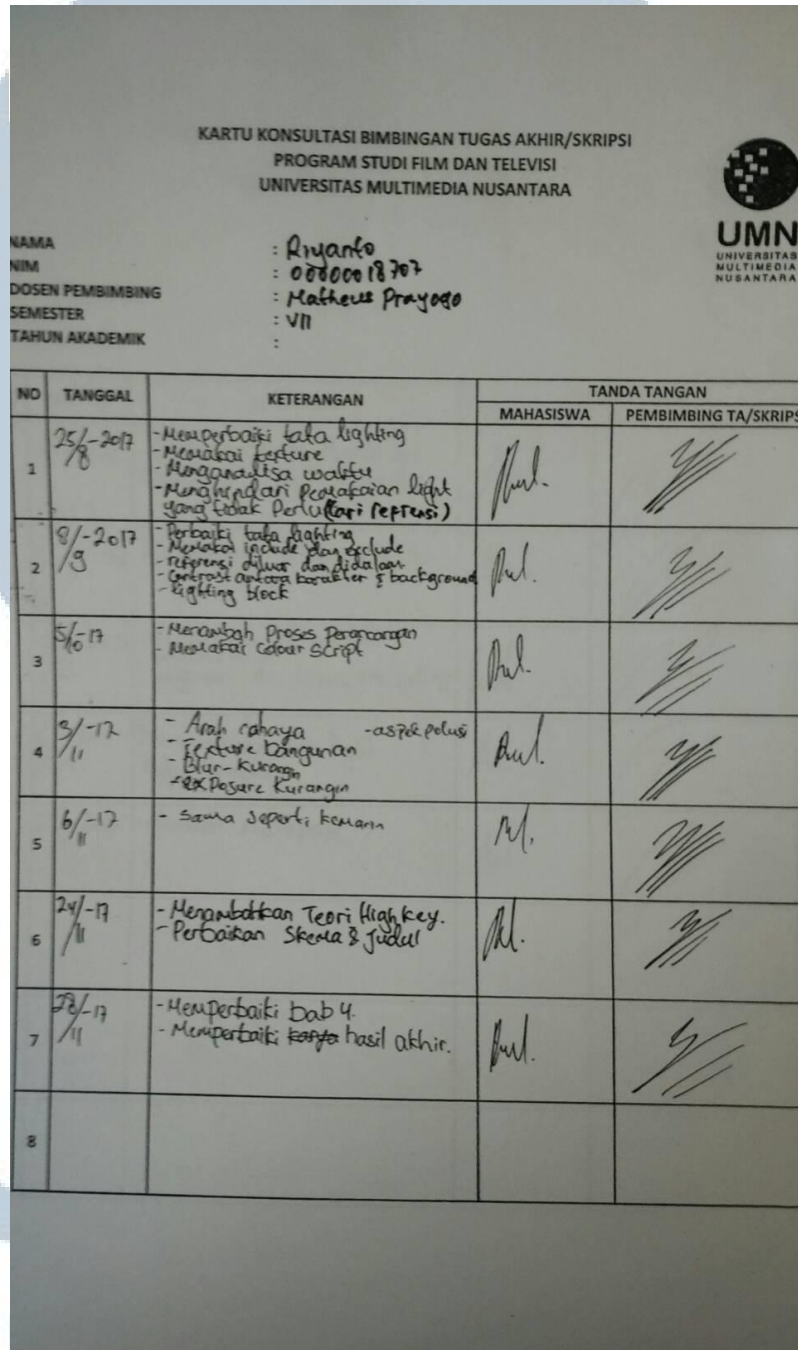 KARTU KONSULTASI BIMBINGAN TUGAS AKHIR/SKRIPSI
PROGRAM STUDI FILM DAN TELEVISI
UNIVERSITAS MULTIMEDIA NUSANTARA
UMN
UNIVERSITAS
MULTIMEDIA
NUSANTARA
NAMA : Riyanto
NIM : 00000018707
DOSEN PEMBIMBING : Matheus Prayogo
SEMESTER : VII
TAHUN AKADEMIK :
NO TANGGAL KETERANGAN TANDA TANGAN
MAHASISWA PEMBIMBING TA/SKRIPS
1 25/8-2017 -Memperbaiki tata lighting
-Memakai texture
-Menganalisa waktu
-Menghindari Pemakaian light
yang tidak Perlu (cari reprensi)
2 8/9-2017 -Perbaiki tata lighting
-Memakai include dan exclude
-referensi diluar dan didalam
-Contrast antara karakter & background
-Lighting block
3 5/10-17 -Menambah Proses Perancangan
-Memakai Colour Script
4 3/11-17 - Arah cahaya -aspek polusi
- Texture bangunan
- Blur - kurangin
- exposure kurangin
5 6/11-17 - Sama seperti kemarin
6 24/11-17 -Menambahkan Teori High key.
-Perbaikan Skema & Judul
7 28/11-17 -Memperbaiki bab 4.
-Memperbaiki karya hasil akhir.
8